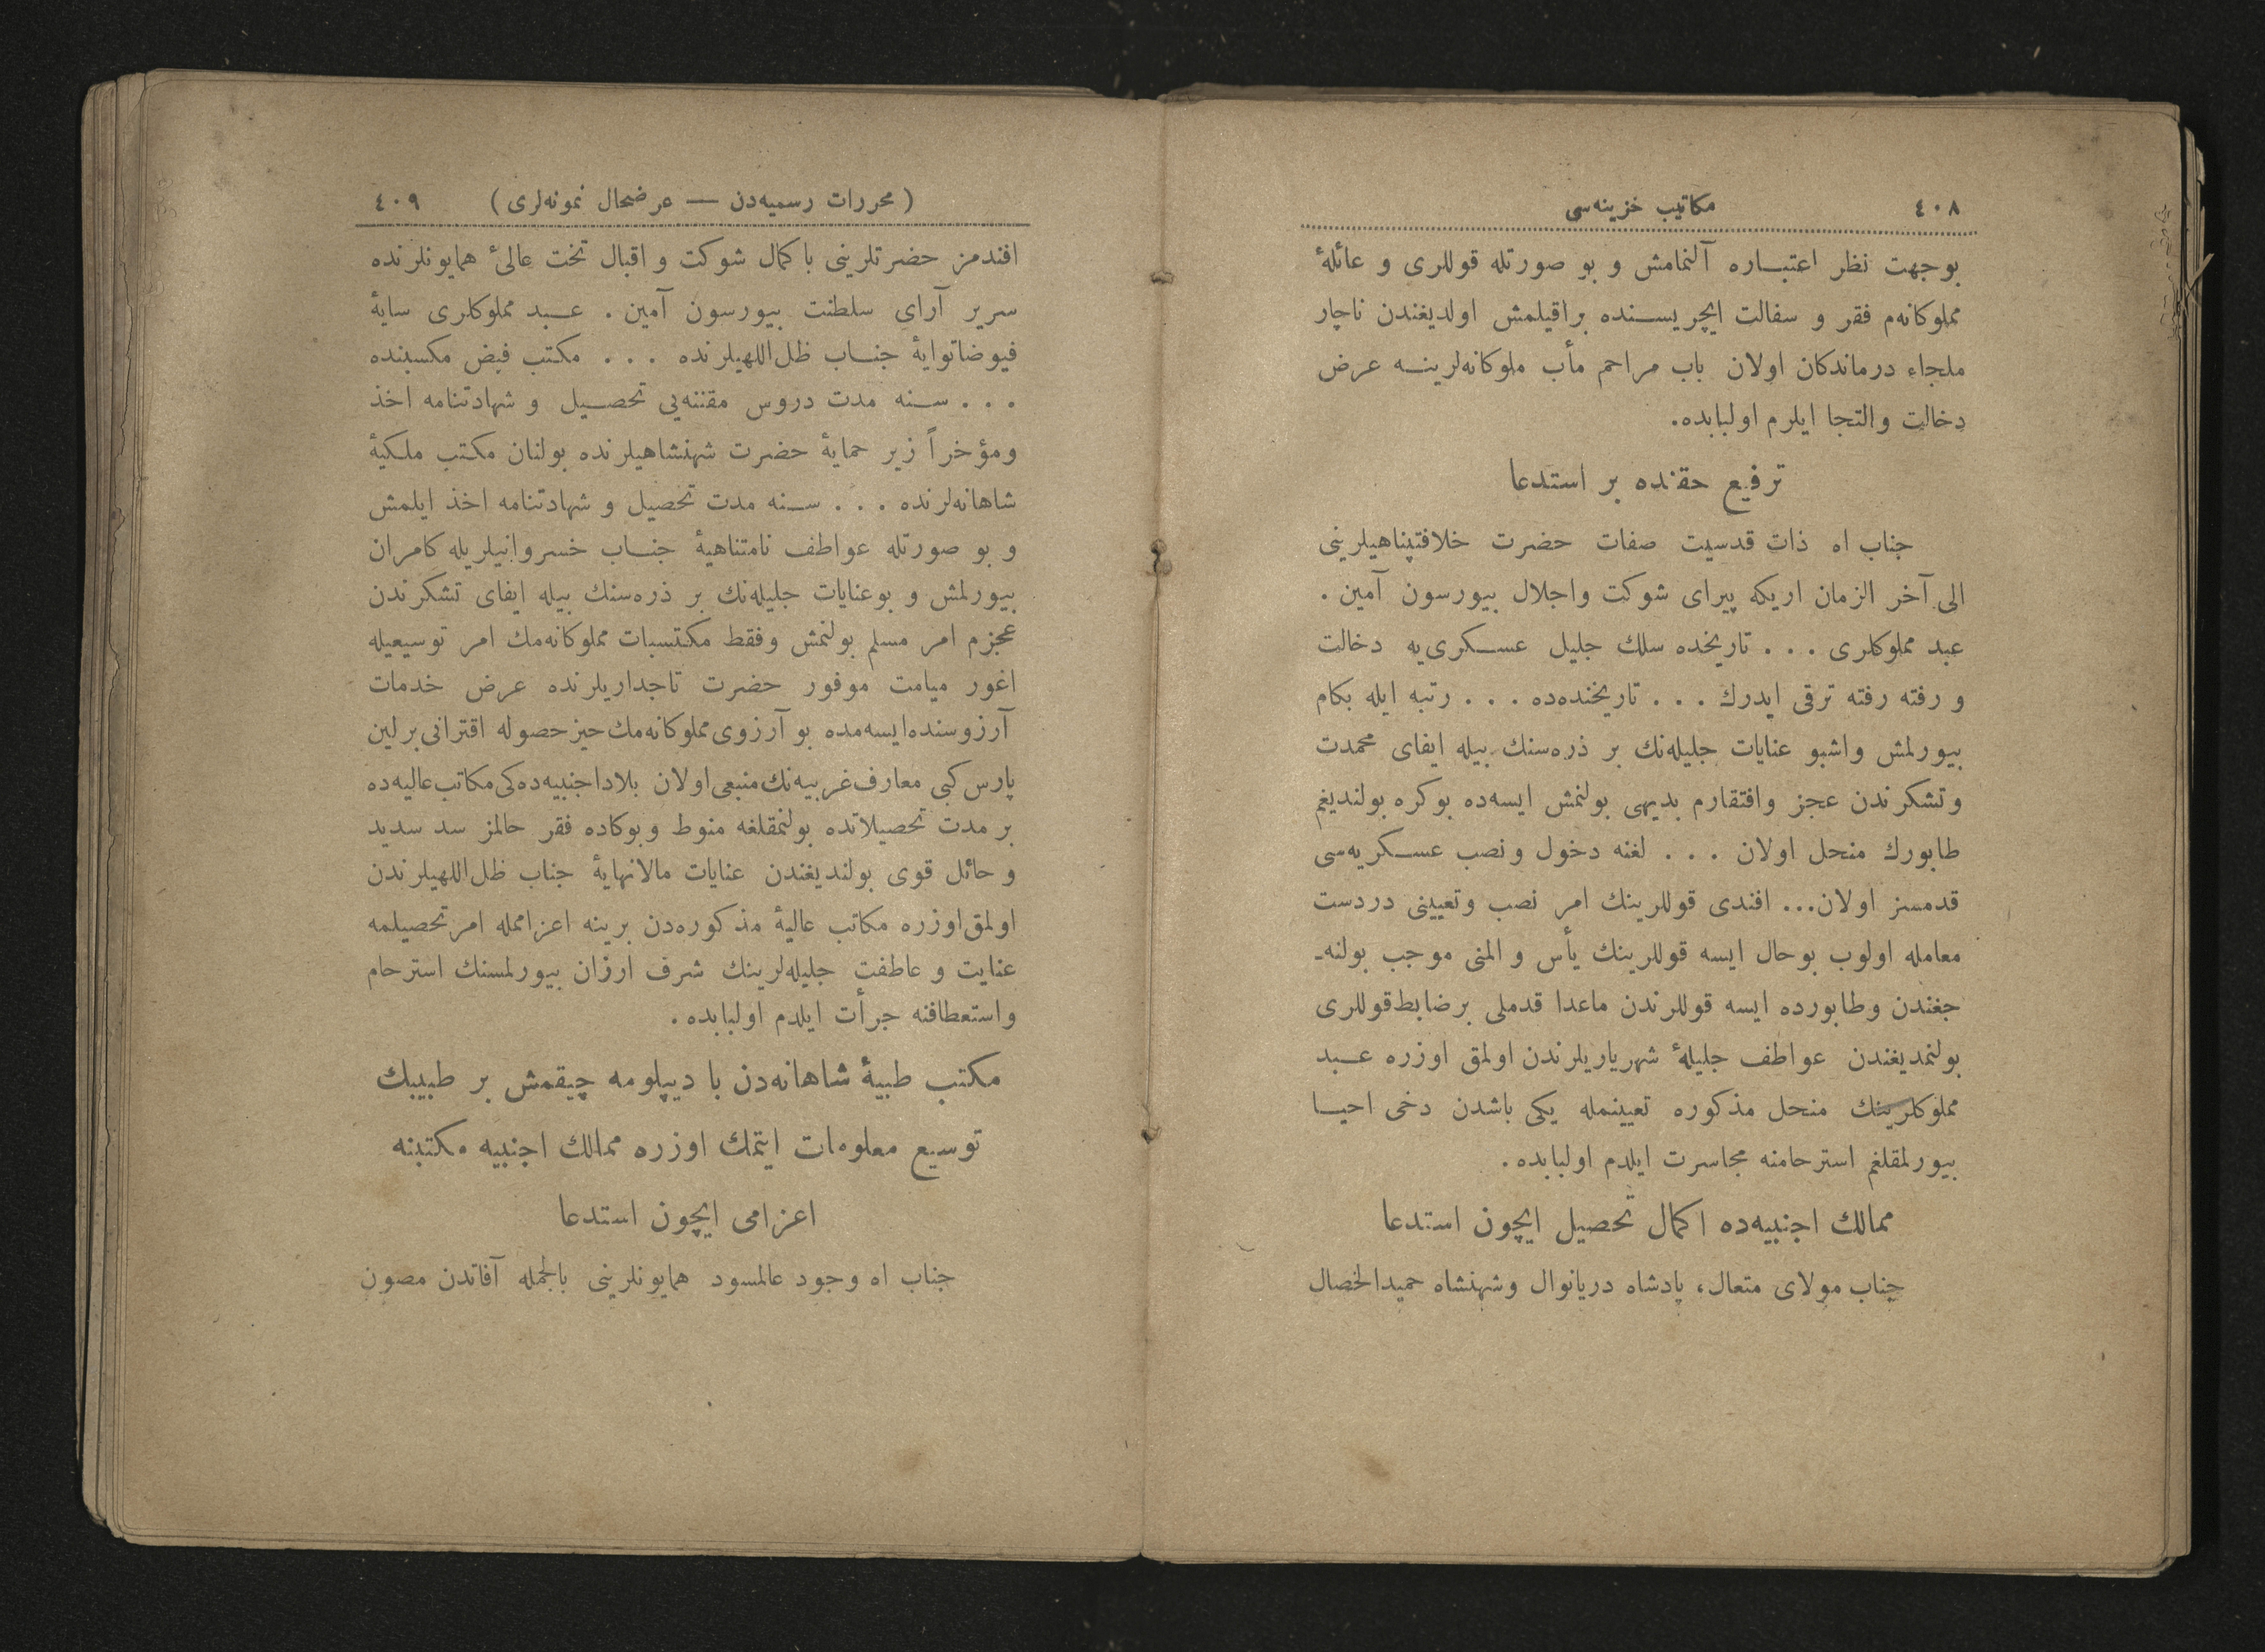 ٤٠٨
مكاتيب خزينه‌سی
بوجهت نظر اعتبـاره آلنمامش و بو صورتله قوللری و عائلۀ
مملوكانه‌م فقر و سفالت ايچريسـنده براقيلمش اولديغندن ناچار
ملجاء درماندكان اولان باب مراحم مأب ملوكانه‌لرينـه عرض
دخالت والتجا ايلرم اولبابده.
ترفيع حقنده بر استدعا
جناب اه ذات قدسيت صفات حضرت خلافتپناهيلرينی
الی آخر الزمان اريكه پيرای شوكت واجلال بيورسون آمين .
عبد مملوكلری . . . تاريخده سلك جليل عسـكری‌يه دخالت
و رفته رفته ترقی ايدرك . . . تاريخنده‌ده . . . رتبه ايله بكام
بيورلمش واشبو عنايات جليله‌نك بر ذره‌سنك بيله ايفای محمدت
وتشكرندن عجز وافتقارم بديهی بولنمش ايسه‌ده بوكره بولنديغم
طابورك منحل اولان . . . لغنه دخول ونصب عسـكريه‌سی
قدمسز اولان... افندی قوللرينك امر نصب وتعيينی دردست
معامله اولوب بوحال ايسه قوللرينك يأس و المنی موجب بولنه‌ـ
جغندن وطابورده ايسه قوللرندن ماعدا قدملی برضابط قوللری
بولنمديغندن عواطف جليلۀ شهرياريلرندن اولمق اوزره عـبد
مملوكلرينك منحل مذكوره تعيينمله يكی باشدن دخی احيـا
بيورلمقلغم استرحامنه مجاسرت ايلدم اولبابده .
ممالك اجنبيه‌ده اكمال تحصيل ايچون استدعا
جناب مولای متعال، پادشاه دريانوال وشهنشاه حميدالخصال
( محررات رسميه‌دن — عرضحال نمونه‌لری )
٤٠٩
افندمز حضرتلرينی باكمال شوكت و اقبال تخت عالیٔ همايونلرنده
سرير آرای سلطنت بيورسون آمين . عـبد مملوكلری سايۀ
فيوضاتوايۀ جنـاب ظل‌اللهيلرنده . . . مكتب فيض مكسبنده
. . . سـنه مدت دروس مقننه‌يی تحصـيل و شهادتنامه اخذ
ومؤخراً زير حمايۀ حضرت شهنشاهيلرنده بولنان مكتب ملكيۀ
شاهانه‌لرنده . . . سـنه مدت تحصيل و شهادتنامه اخذ ايلمش
و بو صورتله عواطف نامتناهيۀ جنـاب خسروانيلريله كامران
بيورلمش و بوعنايات جليله‌نك بر ذره‌سنك بيله ايفای تشكرندن
عجزم امر مسلم بولنمش وفقط مكتسبات مملوكانه‌مك امر توسيعيله
اغور ميامت موفور حضرت تاجداريلرنده عرض خدمات
آرزوسنده‌ايسه‌مده بو آرزوی مملوكانه‌مك حيز حصوله اقترانی برلين
پارس كبی معارف غربيه‌نك منبعی اولان بلاداجنبيه‌ده‌كی مكاتب عاليه‌ده
بر مدت تحصيلاتده بولنمقلغه منوط وبوكاده فقر حالمز سد سديد
و حائل قوی بولنديغندن عنايات مالانهايۀ جناب ظل‌اللهيلرندن
اولمق اوزره مكاتب عاليۀ مذكوره‌دن برينه اعزاممله امر تحصيلمه
عنايت و عاطفت جليله‌لرينك شرف ارزان بيورلمسنك استرحام
واستعطافنه جرأت ايلدم اولبابده .
مكتب طبيۀ شاهانه‌دن با ديپلومه چيقمش بر طبيبك
توسيع معلومات ايتمك اوزره ممالك اجنبيه مكتبنه
اعزامی ايچون استدعا
جناب اه وجود عالمسود همايونلرينی بالجمله آفاتدن مصون